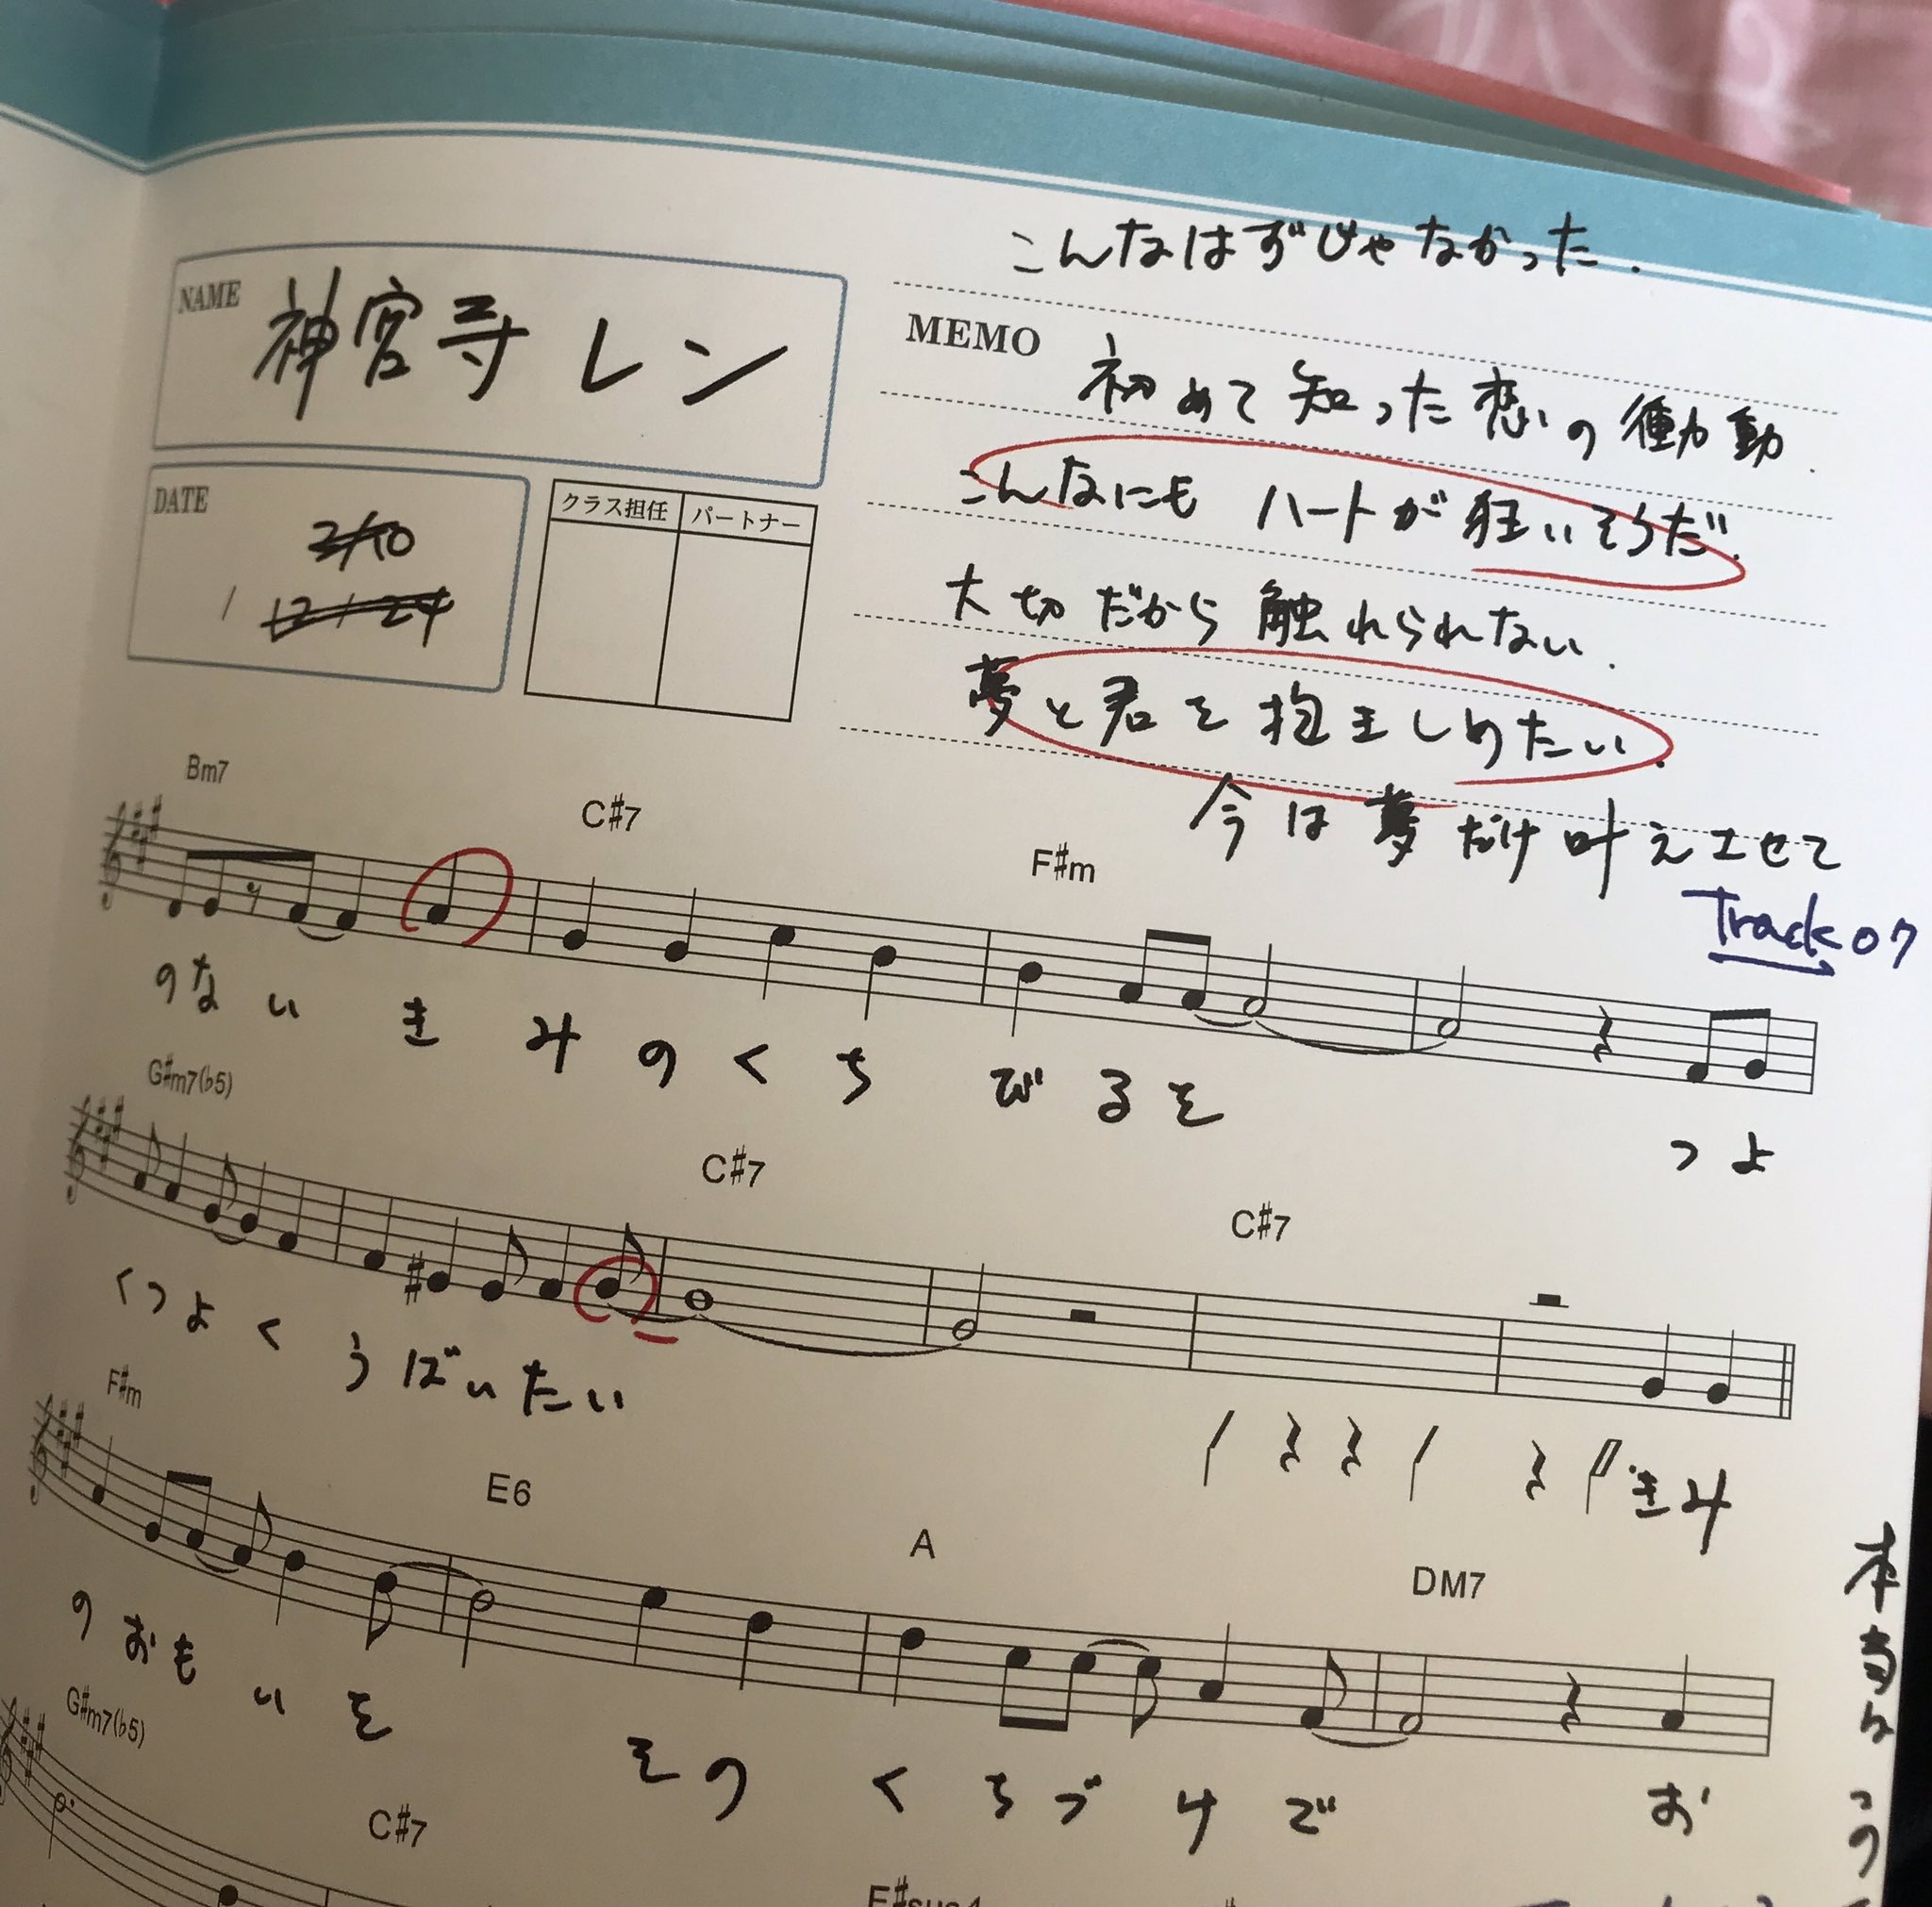 こんなはずじゃなかった.
NAME 神宮寺レン
MEMO 初めて知った恋の衝動.
こんなにも ハートが狂いそうだ.
DATE 2/10
/ 12/24
クラス担任 パートナー
大切だから触れられない.
夢と君を抱きしめたい.
今は夢だけ叶えさせて
Track 07
Bm7 C#7 F#m
のない きみのくちびるを つよ
G#m7(♭5) C#7 C#7
くつよく うばいたい きみ
F#m E6 A DM7
のおもいを そのくちづけで お
G#m7(♭5) C#7
本当は この